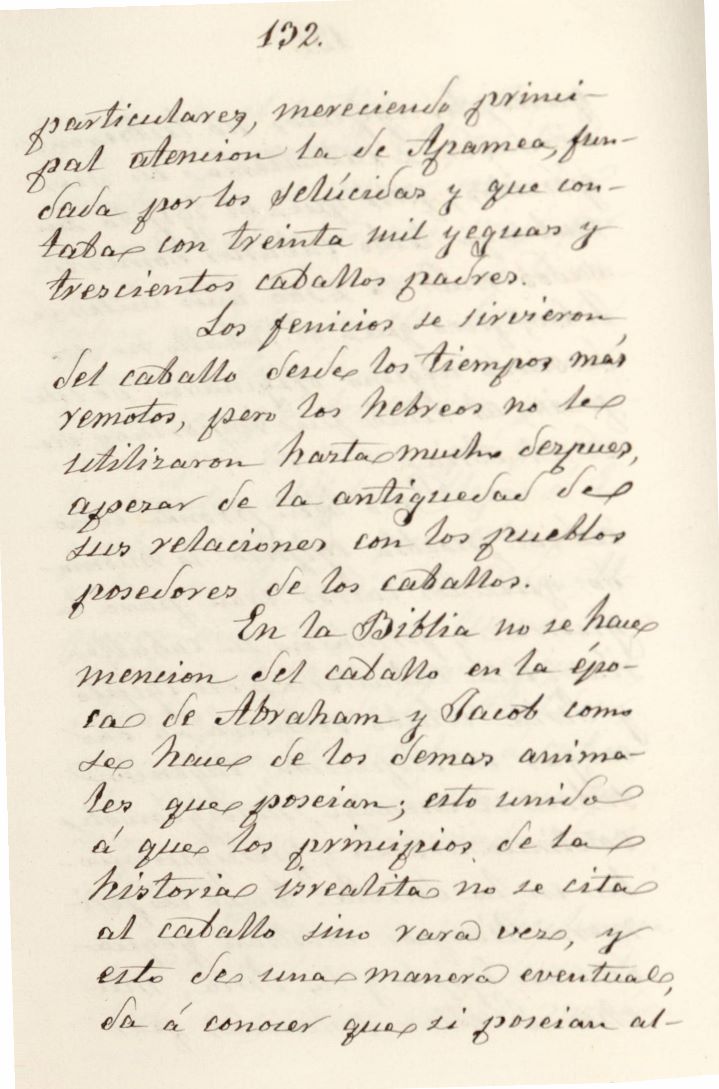 132.
particulares, mereciendo princi-
pal atencion la de Apamea, fun-
dada por los Selúcidas y que con-
taba con treinta mil yeguas y
trescientos caballos padres.
Los fenicios se sirvieron
del caballo desde los tiempos más
remotos, pero los hebreos no le
utilizaron hasta mucho despues,
apesar de la antiguedad de
sus relaciones con los pueblos
posedores de los caballos.
En la Biblia no se hace
mencion del caballo en la épo-
ca de Abraham y Jacob como
se hace de los demas anima-
les que poseian; esto unido
á que los principios de la
historia isrealita no se cita
al caballo sino rara vez, y
esto de una manera eventual,
da á conocer que si poseian al-